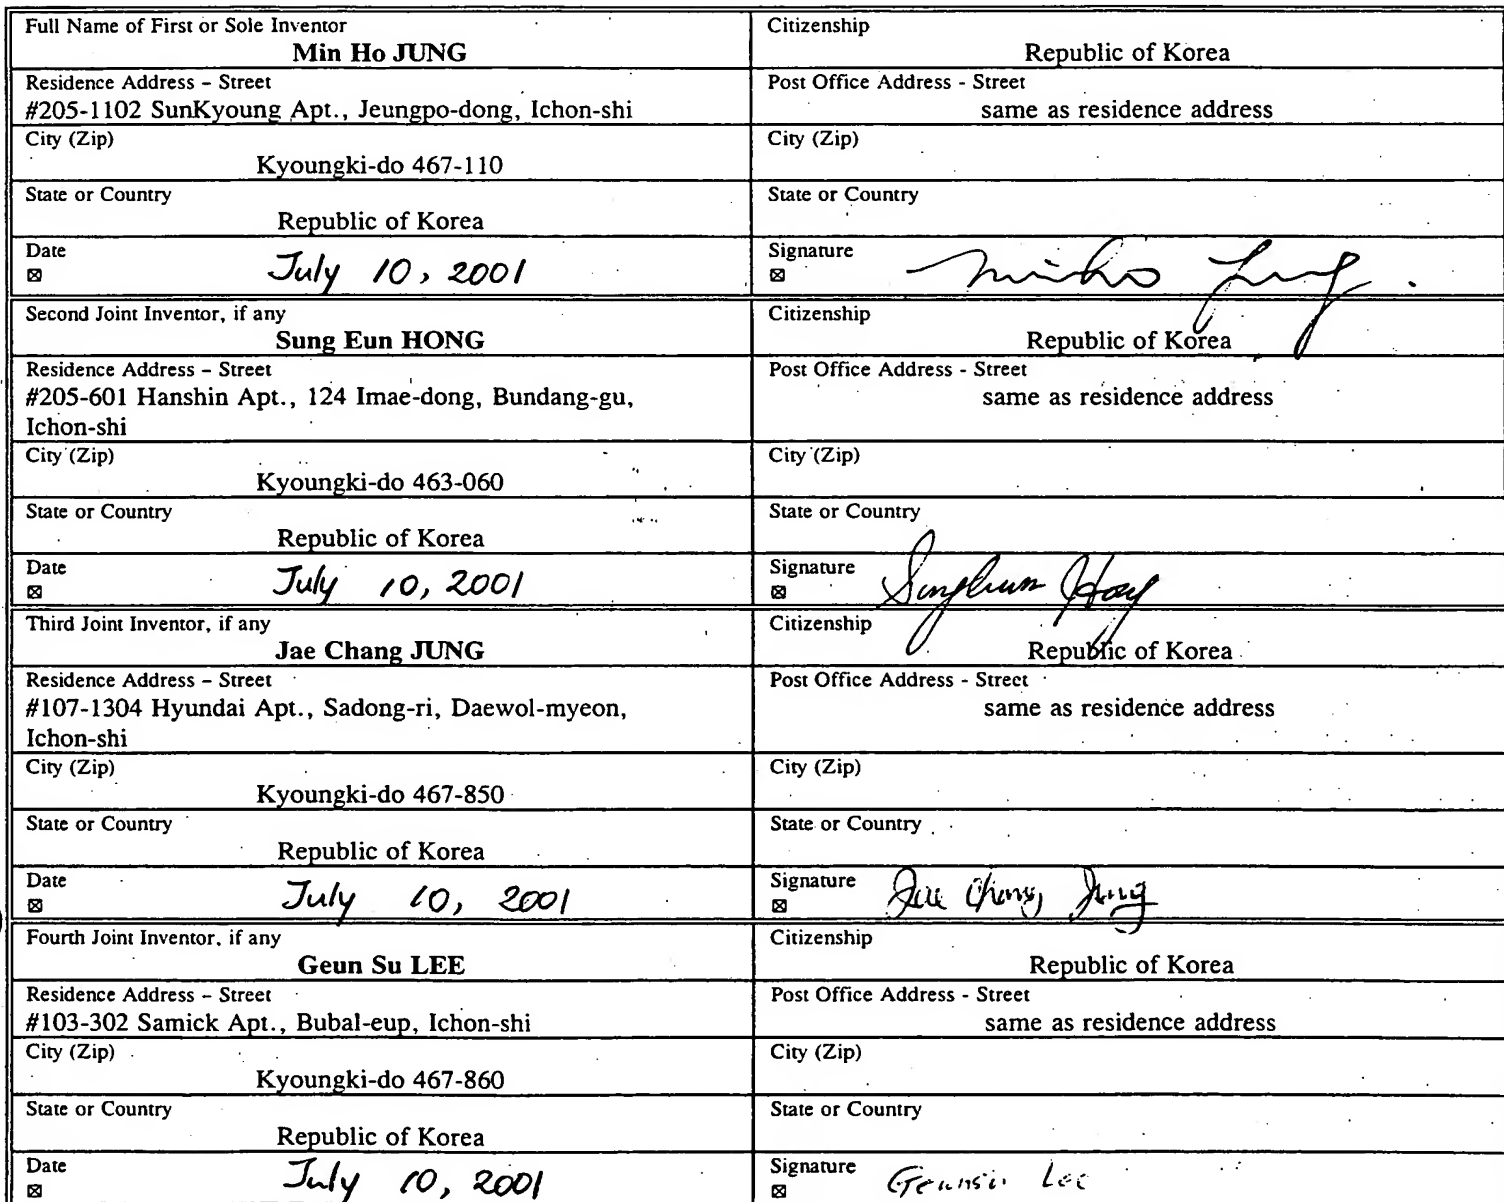 Full Name of First or Sole Inventor
Min Ho JUNG
Citizenship
Republic of Korea
Residence Address – Street
#205-1102 SunKyoung Apt., Jeungpo-dong, Ichon-shi
Post Office Address - Street
same as residence address
City (Zip)
Kyoungki-do 467-110
City (Zip)
State or Country
Republic of Korea
State or Country
Date
☒ July 10, 2001
Signature
☒ Minho Jung.
Second Joint Inventor, if any
Sung Eun HONG
Citizenship
Republic of Korea
Residence Address – Street
#205-601 Hanshin Apt., 124 Imae-dong, Bundang-gu,
Ichon-shi
Post Office Address - Street
same as residence address
City (Zip)
Kyoungki-do 463-060
City (Zip)
State or Country
Republic of Korea
State or Country
Date
☒ July 10, 2001
Signature
☒ SungEun Hong
Third Joint Inventor, if any
Jae Chang JUNG
Citizenship
Republic of Korea
Residence Address – Street
#107-1304 Hyundai Apt., Sadong-ri, Daewol-myeon,
Ichon-shi
Post Office Address - Street
same as residence address
City (Zip)
Kyoungki-do 467-850
City (Zip)
State or Country
Republic of Korea
State or Country
Date
☒ July 10, 2001
Signature
☒ Jae Chang Jung
Fourth Joint Inventor, if any
Geun Su LEE
Citizenship
Republic of Korea
Residence Address – Street
#103-302 Samick Apt., Bubal-eup, Ichon-shi
Post Office Address - Street
same as residence address
City (Zip)
Kyoungki-do 467-860
City (Zip)
State or Country
Republic of Korea
State or Country
Date
☒ July 10, 2001
Signature
☒ Geunsu Lee